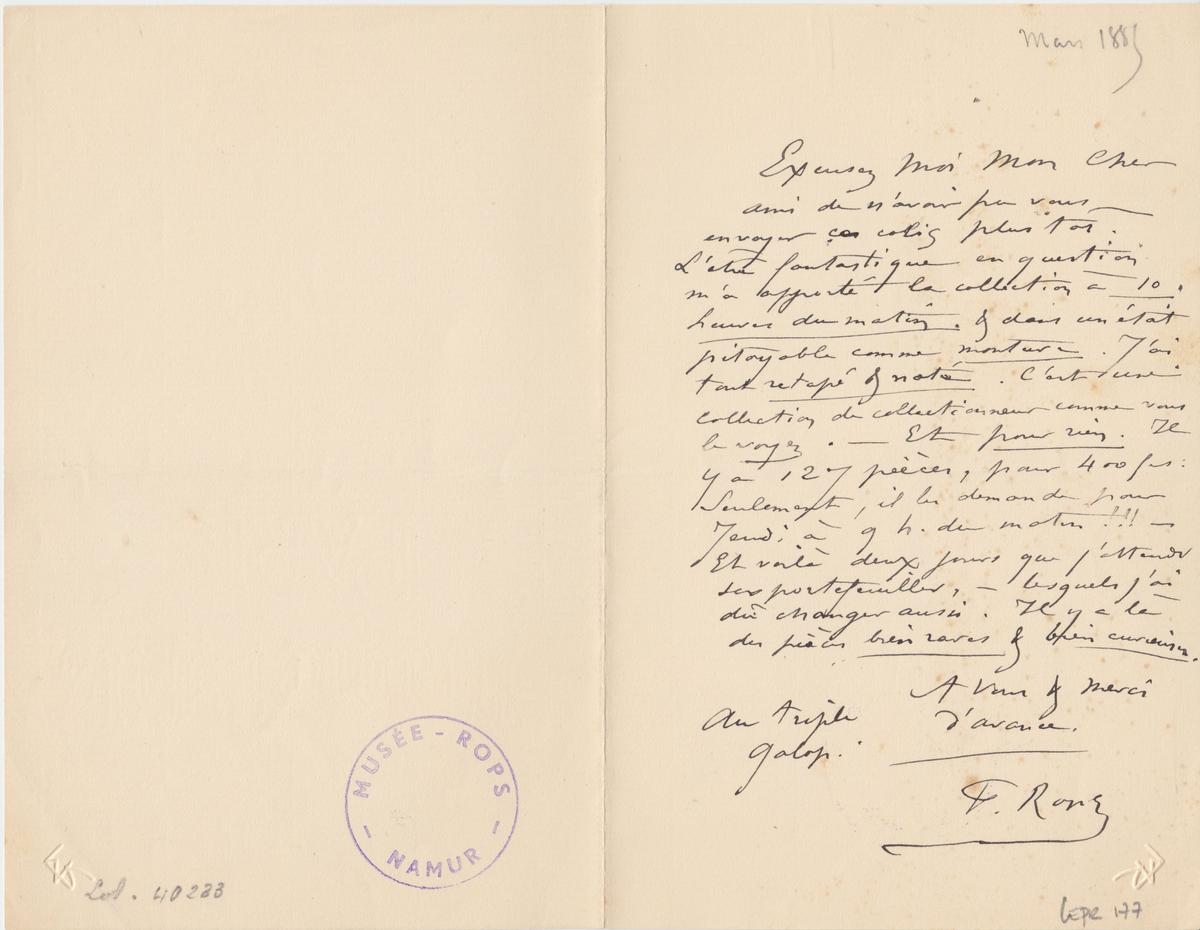 Mars 1885
Excusez Moi Mon Cher
ami de n'avoir pu vous
envoyer ces colis plus tôt.
L'être fantastique en question
m'a apporté la collection à 10.
heures du matin. & dans un état
pitoyable comme monture. J'ai
tout retapé & noté. C'est une
collection de collectionneur comme vous
le voyez. — Et pour rien. Il
y a 127 pièces, pour 400 frs:
Seulement, il les demande pour
Jeudi à 9 h. du matin !!! —
Et voilà deux jours que j'attends
ses portefeuilles, — lesquels j'ai
dû changer aussi. Il y a là
des pièces bien rares & bien curieuses.
A Vous & merci
d'avance.
Au triple
galop.
F. Rops
MUSÉE - ROPS
- NAMUR -
40233
LEPR 177